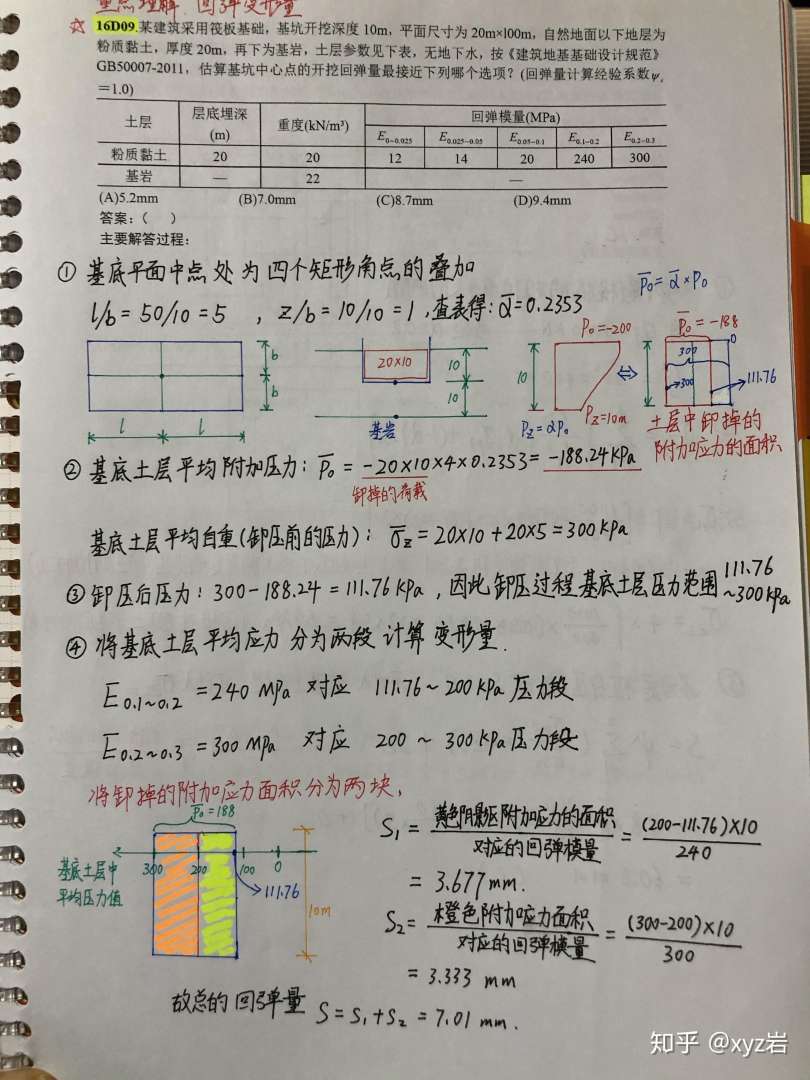 重点理解 回弹变形量
☆ 16D09.某建筑采用筏板基础，基坑开挖深度 10m，平面尺寸为 20m×100m，自然地面以下地层为
粉质黏土，厚度 20m，再下为基岩，土层参数见下表，无地下水，按《建筑地基基础设计规范》
GB50007-2011，估算基坑中心点的开挖回弹量最接近下列哪个选项？(回弹量计算经验系数ψc
＝1.0)
土层 层底埋深(m) 重度(kN/m³) 回弹模量(MPa)
E0~0.025 E0.025~0.05 E0.05~0.1 E0.1~0.2 E0.2~0.3
粉质黏土 20 20 12 14 20 240 300
基岩 — 22 —
(A)5.2mm (B)7.0mm (C)8.7mm (D)9.4mm
答案：（ ）
主要解答过程：
① 基底平面中点处为四个矩形角点的叠加
P̄0=ᾱ×P0
l/b=50/10=5 ，Z/b=10/10=1，查表得：ᾱ=0.2353
b
b
l l
20×10
10
10
基岩
P0=-200
10
Pz=αP0
Pz=10m
P̄0=-188
0
300
300
111.76
土层中卸掉的
附加应力的面积
② 基底土层平均附加压力：P̄0=-20×10×4×0.2353=-188.24kPa
卸掉的荷载
基底土层平均自重(卸压前的压力)：σ̄z=20×10+20×5=300kPa
③ 卸压后压力：300-188.24=111.76kPa，因此卸压过程基底土层压力范围111.76~300kPa
④ 将基底土层平均应力分为两段计算变形量.
E0.1~0.2=240MPa 对应 111.76~200kPa压力段
E0.2~0.3=300MPa 对应 200~300kPa压力段
将卸掉的附加应力面积分为两块，
P̄0=188
基底土层中
平均压力值
300 200 100 0
111.76
10m
S1=黄色阴影区附加应力的面积/对应的回弹模量=(200-111.76)×10/240
=3.677mm.
S2=橙色附加应力面积/对应的回弹模量=(300-200)×10/300
=3.333mm
故总的回弹量 S=S1+S2=7.01mm.
知乎 @xyz岩